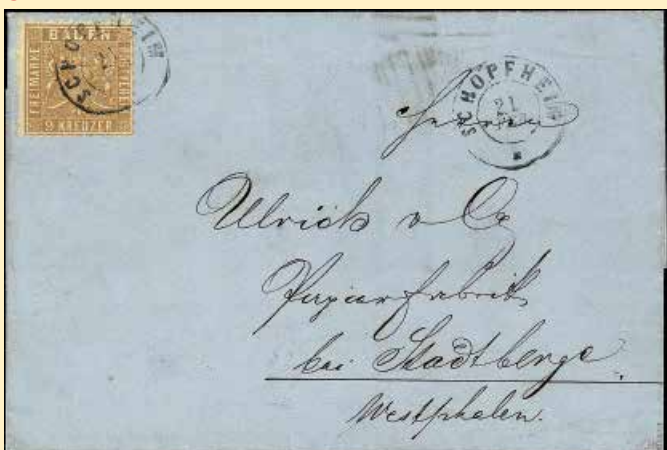 BADEN
FREIMARKE
9 KREUZER
SCHOPFHEIM
SCHOPFHEIM
21
Herren
Ulrich & Co
Papierfabrik
bei Stadtberge
Westphalen.